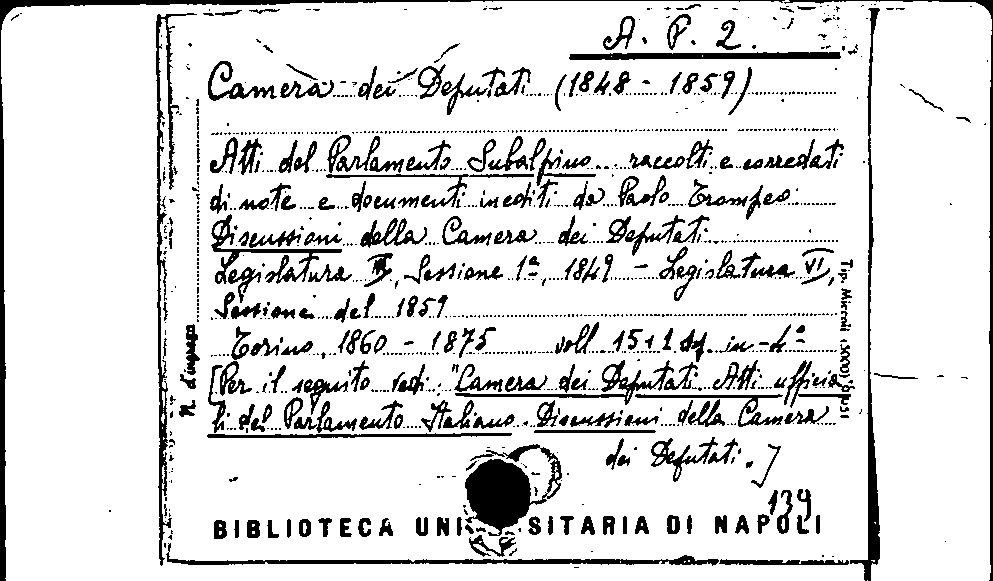 A. P. 2.
Camera dei Deputati (1848 - 1859)
Atti del Parlamento Subalpino raccolti e corredati
di note e documenti inediti da Paolo Trompeo
Discussioni della Camera dei Deputati.
Legislatura III, Sessione 1ª, 1849 - Legislatura VI,
Sessione del 1859
Torino, 1860 - 1875 voll. 15 in-4°
[Per il seguito vedi: "Camera dei Deputati Atti ufficia
li del Parlamento Italiano. Discussioni della Camera
dei Deputati.]
139
BIBLIOTECA UNI SITARIA DI NAPOLI
N. d'ingresso
Tip. Miccoli